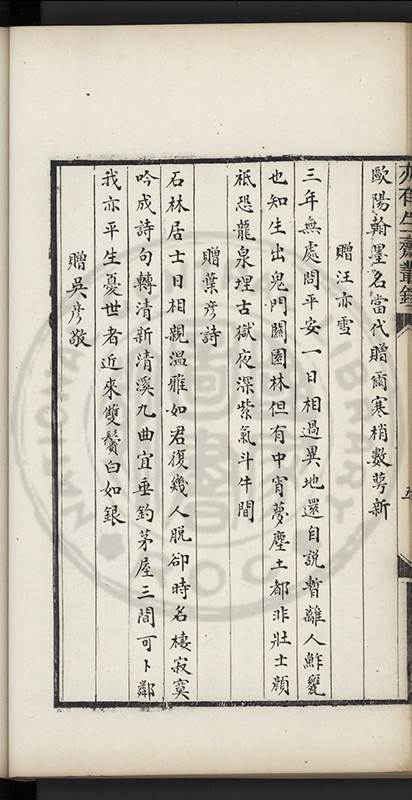 亦有生齋叢錄
歐陽翰墨名當代贈爾寒梢數萼新
贈汪亦雪
三年無處問平安一日相過異地還自說暫離人鮓甕
也知生出鬼門關園林但有中宵夢塵土都非壯士顏
祗恐龍泉埋古獄夜深紫氣斗牛間
贈葉彥詩
石林居士日相親溫雅如君復幾人脫卻時名棲寂寞
吟成詩句轉清新清溪九曲宜垂釣茅屋三間可卜鄰
我亦平生憂世者近來雙鬢白如銀
贈吳彥敬